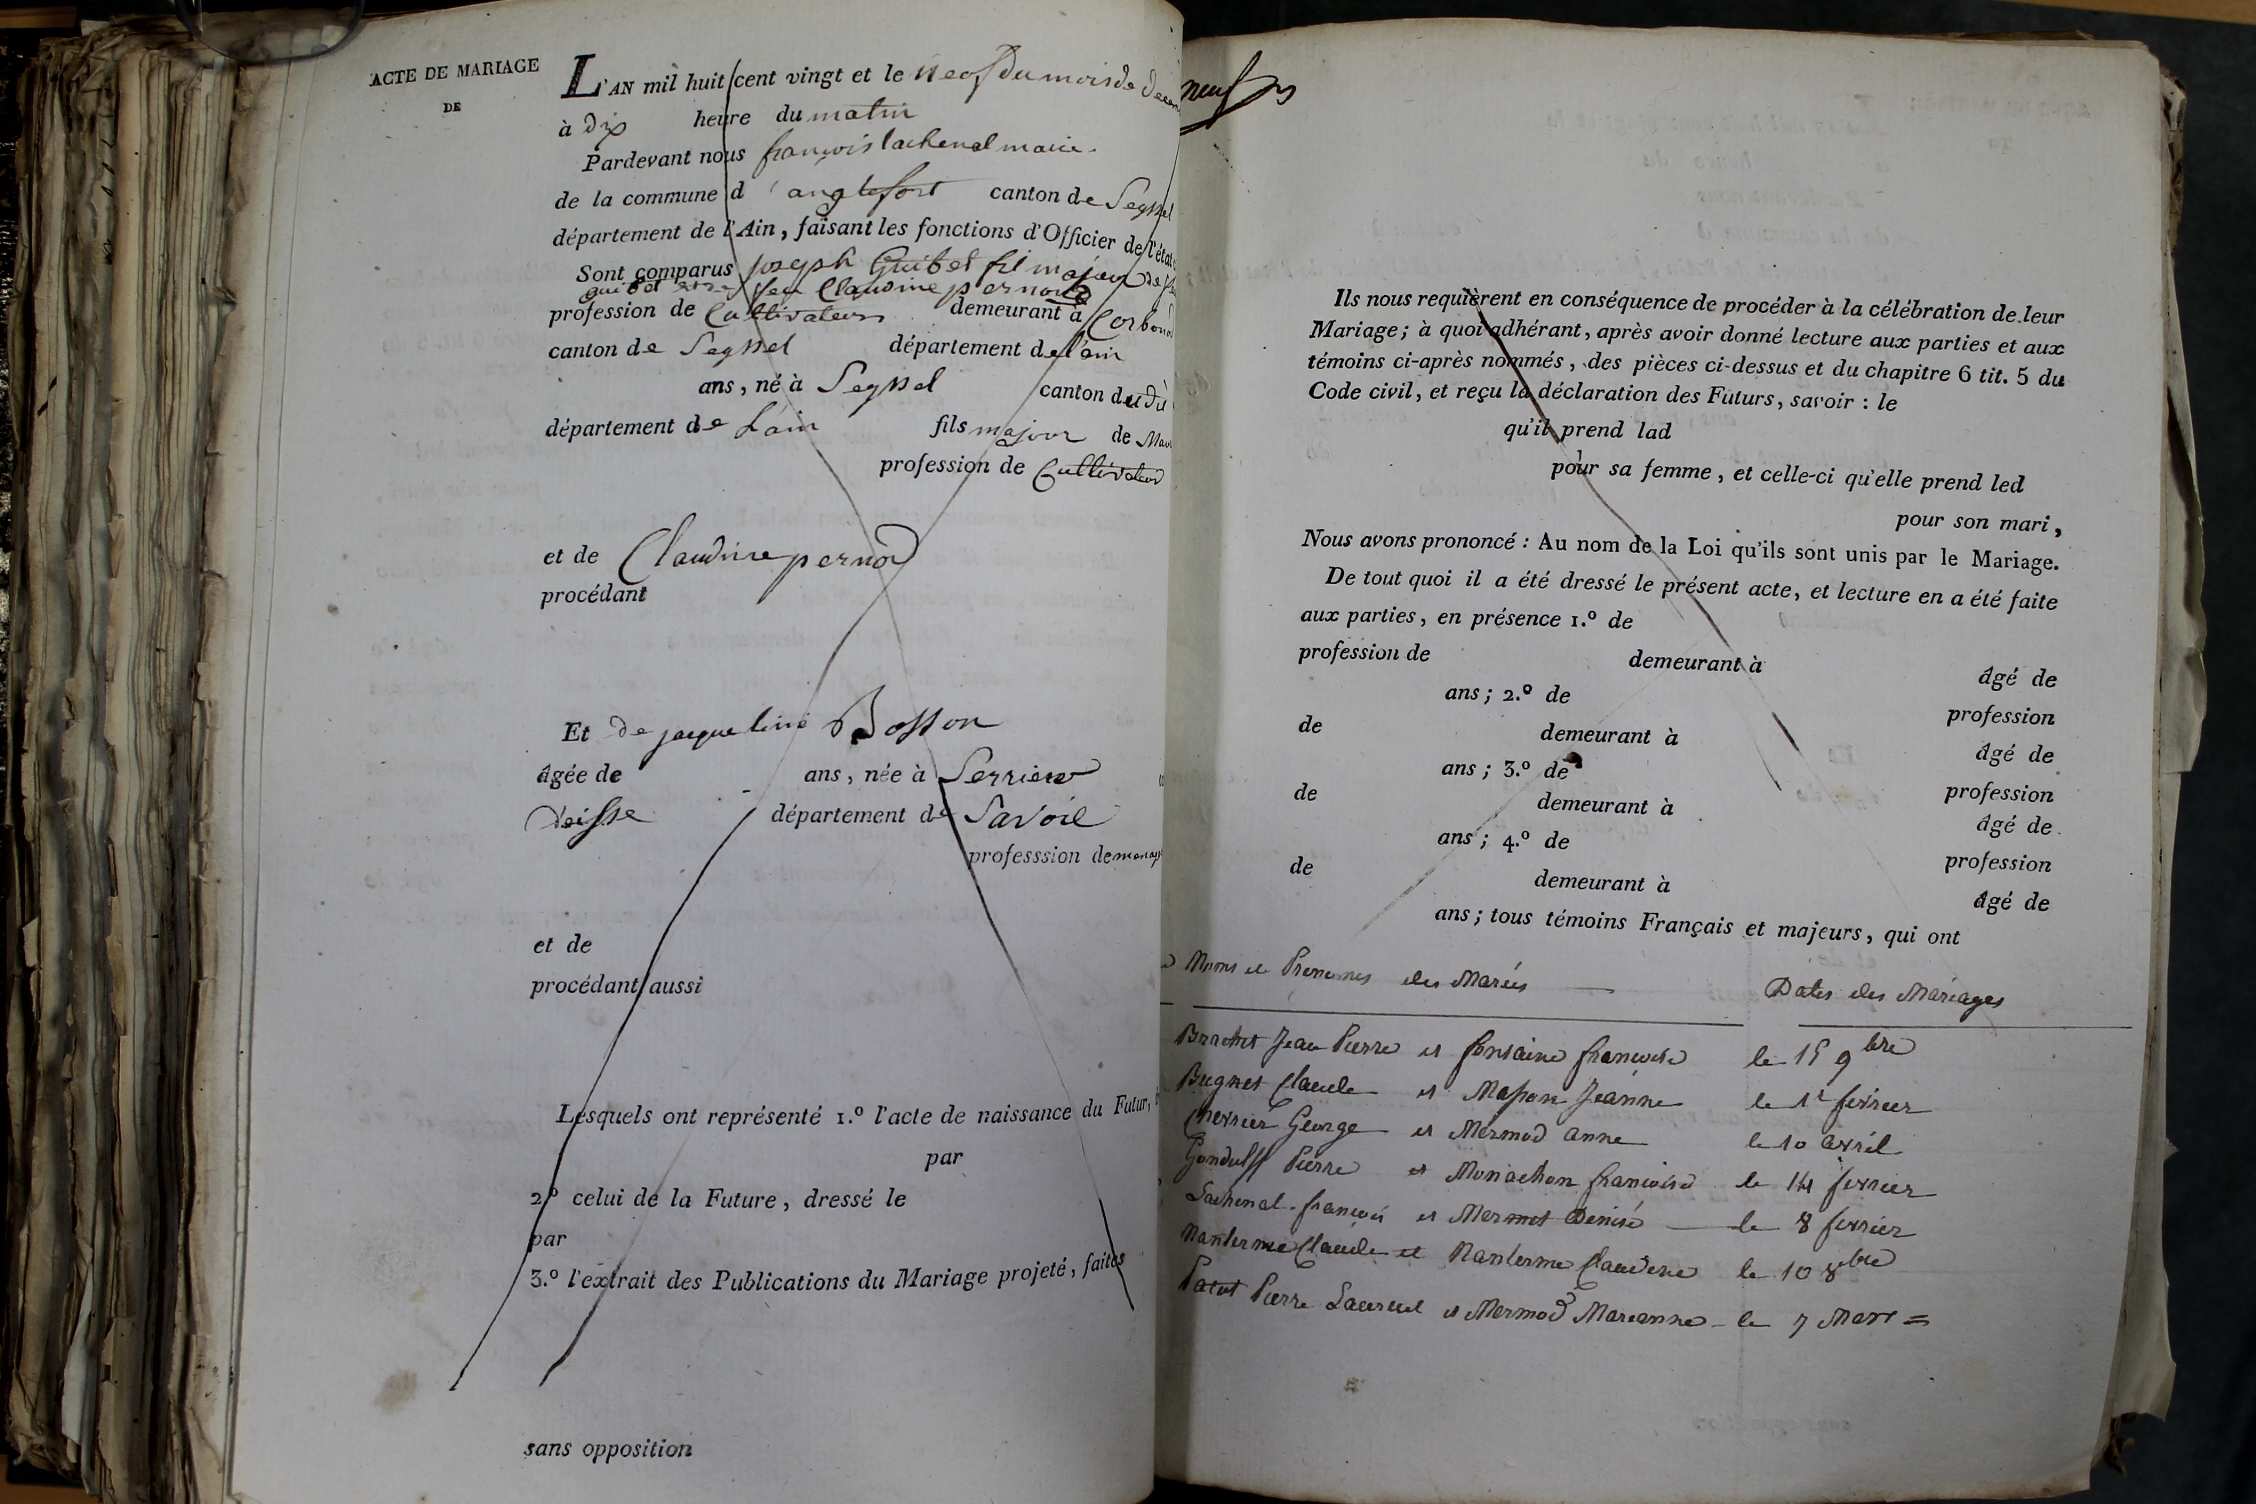 ACTE DE MARIAGE
DE
L'AN mil huit cent vingt et le neof du mois de
à dix heure du matin
Pardevant nous françois lachenal maire
de la commune d'anglefort canton de Seyssel
département de l'Ain, faisant les fonctions d'Officier de l'état
Sont comparus joseph Guibet fil majeur de
guibet feu Claudine pernoud
profession de Cultivateur demeurant à Corbonod
canton de Seyssel département de l'ain
ans, né à Seyssel canton du dù
département de L'ain fils majour de
profession de Cultivateur
et de Claudine pernod
procédant
Et de jacqueline Bosson
âgée de ans, née à Serriere
département de Savoie
professsion de
et de
procédant aussi
Lesquels ont représenté 1.º l'acte de naissance du Futur,
par
2.º celui de la Future, dressé le
par
3.º l'extrait des Publications du Mariage projeté, faites
sans opposition
neuf
Ils nous requièrent en conséquence de procéder à la célébration de leur
Mariage; à quoi adhérant, après avoir donné lecture aux parties et aux
témoins ci-après nommés, des pièces ci-dessus et du chapitre 6 tit. 5 du
Code civil, et reçu la déclaration des Futurs, savoir : le
qu'il prend lad
pour sa femme, et celle-ci qu'elle prend led
pour son mari,
Nous avons prononcé : Au nom de la Loi qu'ils sont unis par le Mariage.
De tout quoi il a été dressé le présent acte, et lecture en a été faite
aux parties, en présence 1.º de
profession de demeurant à âgé de
ans; 2.º de profession
de demeurant à âgé de
ans; 3.º de profession
de demeurant à âgé de
ans; 4.º de profession
de demeurant à âgé de
ans; tous témoins Français et majeurs, qui ont
Noms et Prenomes des Mariés Dates des Mariages
Brachet Jean Pierre et fontaine françoise le 15 9bre
Bugnet Claude et Masson Jeanne le 1r fevrier
Cherrier George et Mermod anne le 10 avril
Gondulff Pierre et Monachon françoise le 14 fevrier
Lachenal françois et Mermet Denise le 8 fevrier
Nanterme Claude et Nanterme Claudine le 10 8bre
Patut Pierre Laurent et Mermod Marianne le 7 Mars =